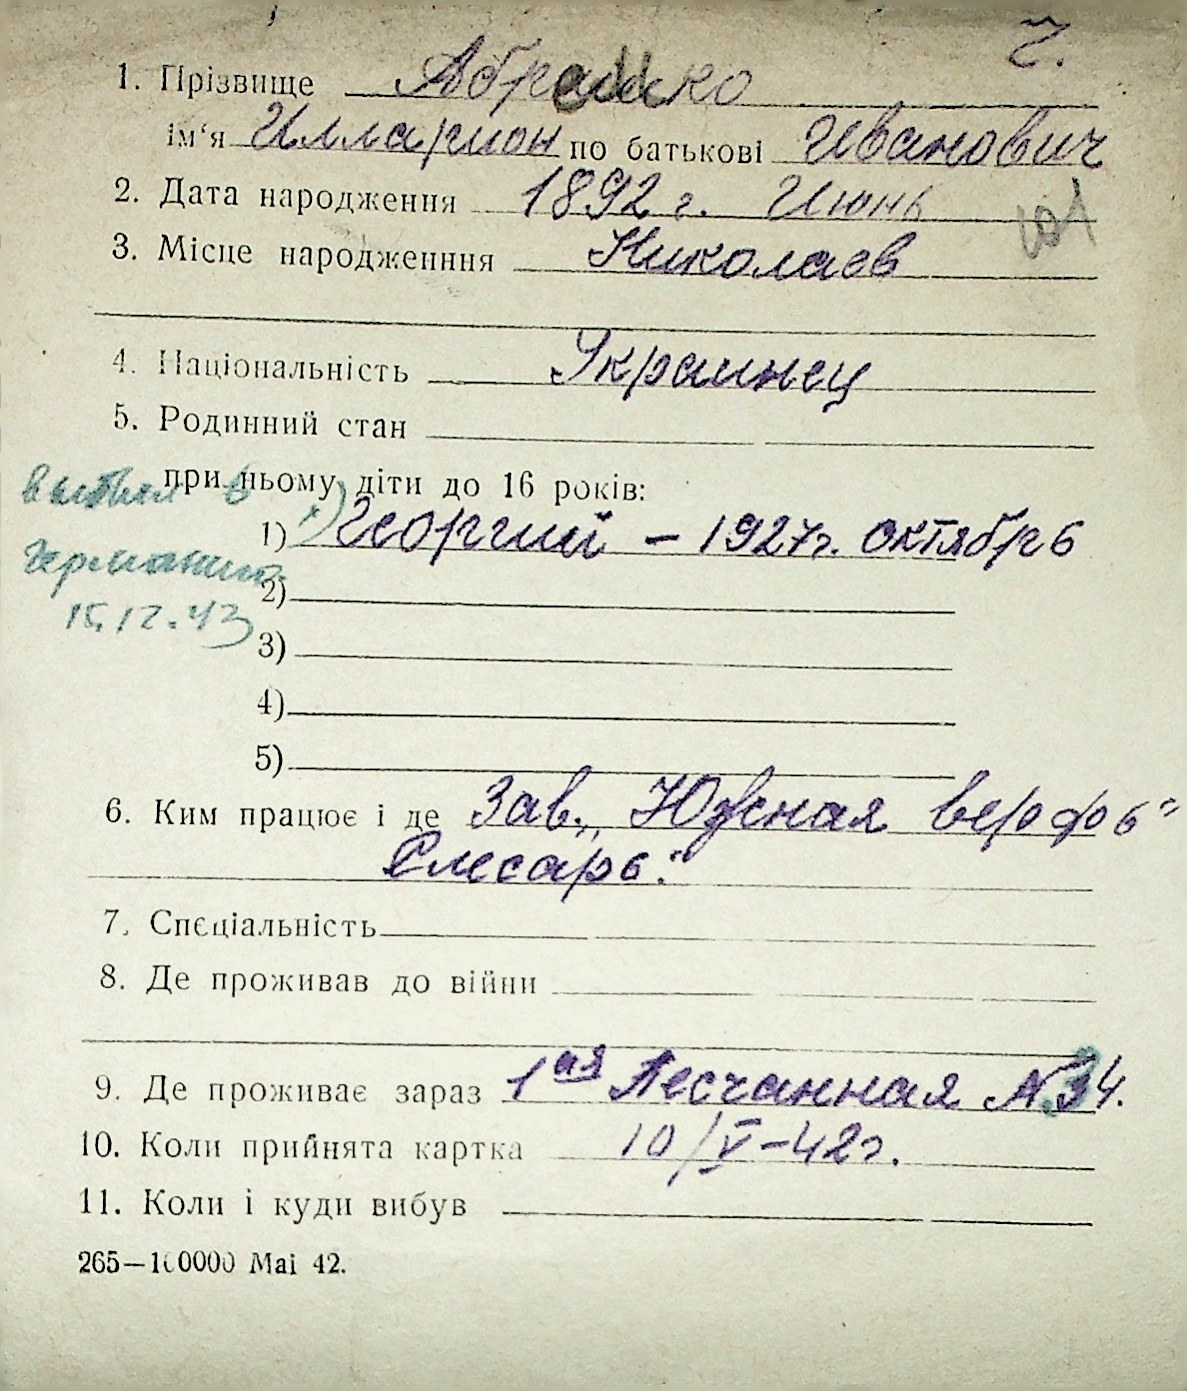 Ч.
1. Прізвище Абрамко
ім‘я Илларион по батькові Иванович
2. Дата народження 1892 г. Июнь
3. Місце народженння Николаев
4. Національність Украинец
5. Родинний стан
при ньому діти до 16 років:
выбыл в
1) Георгий – 1927г. октябрь
Германию
2)
15.12.43
3)
4)
5)
6. Ким працює і де Зав. „Южная верфь“
Слесарь.
7. Спеціальність
8. Де проживав до війни
9. Де проживає зараз 1ая Песчанная №34.
10. Коли прийнята картка 10/V–42г.
11. Коли і куди вибув
265—100000 Mai 42.